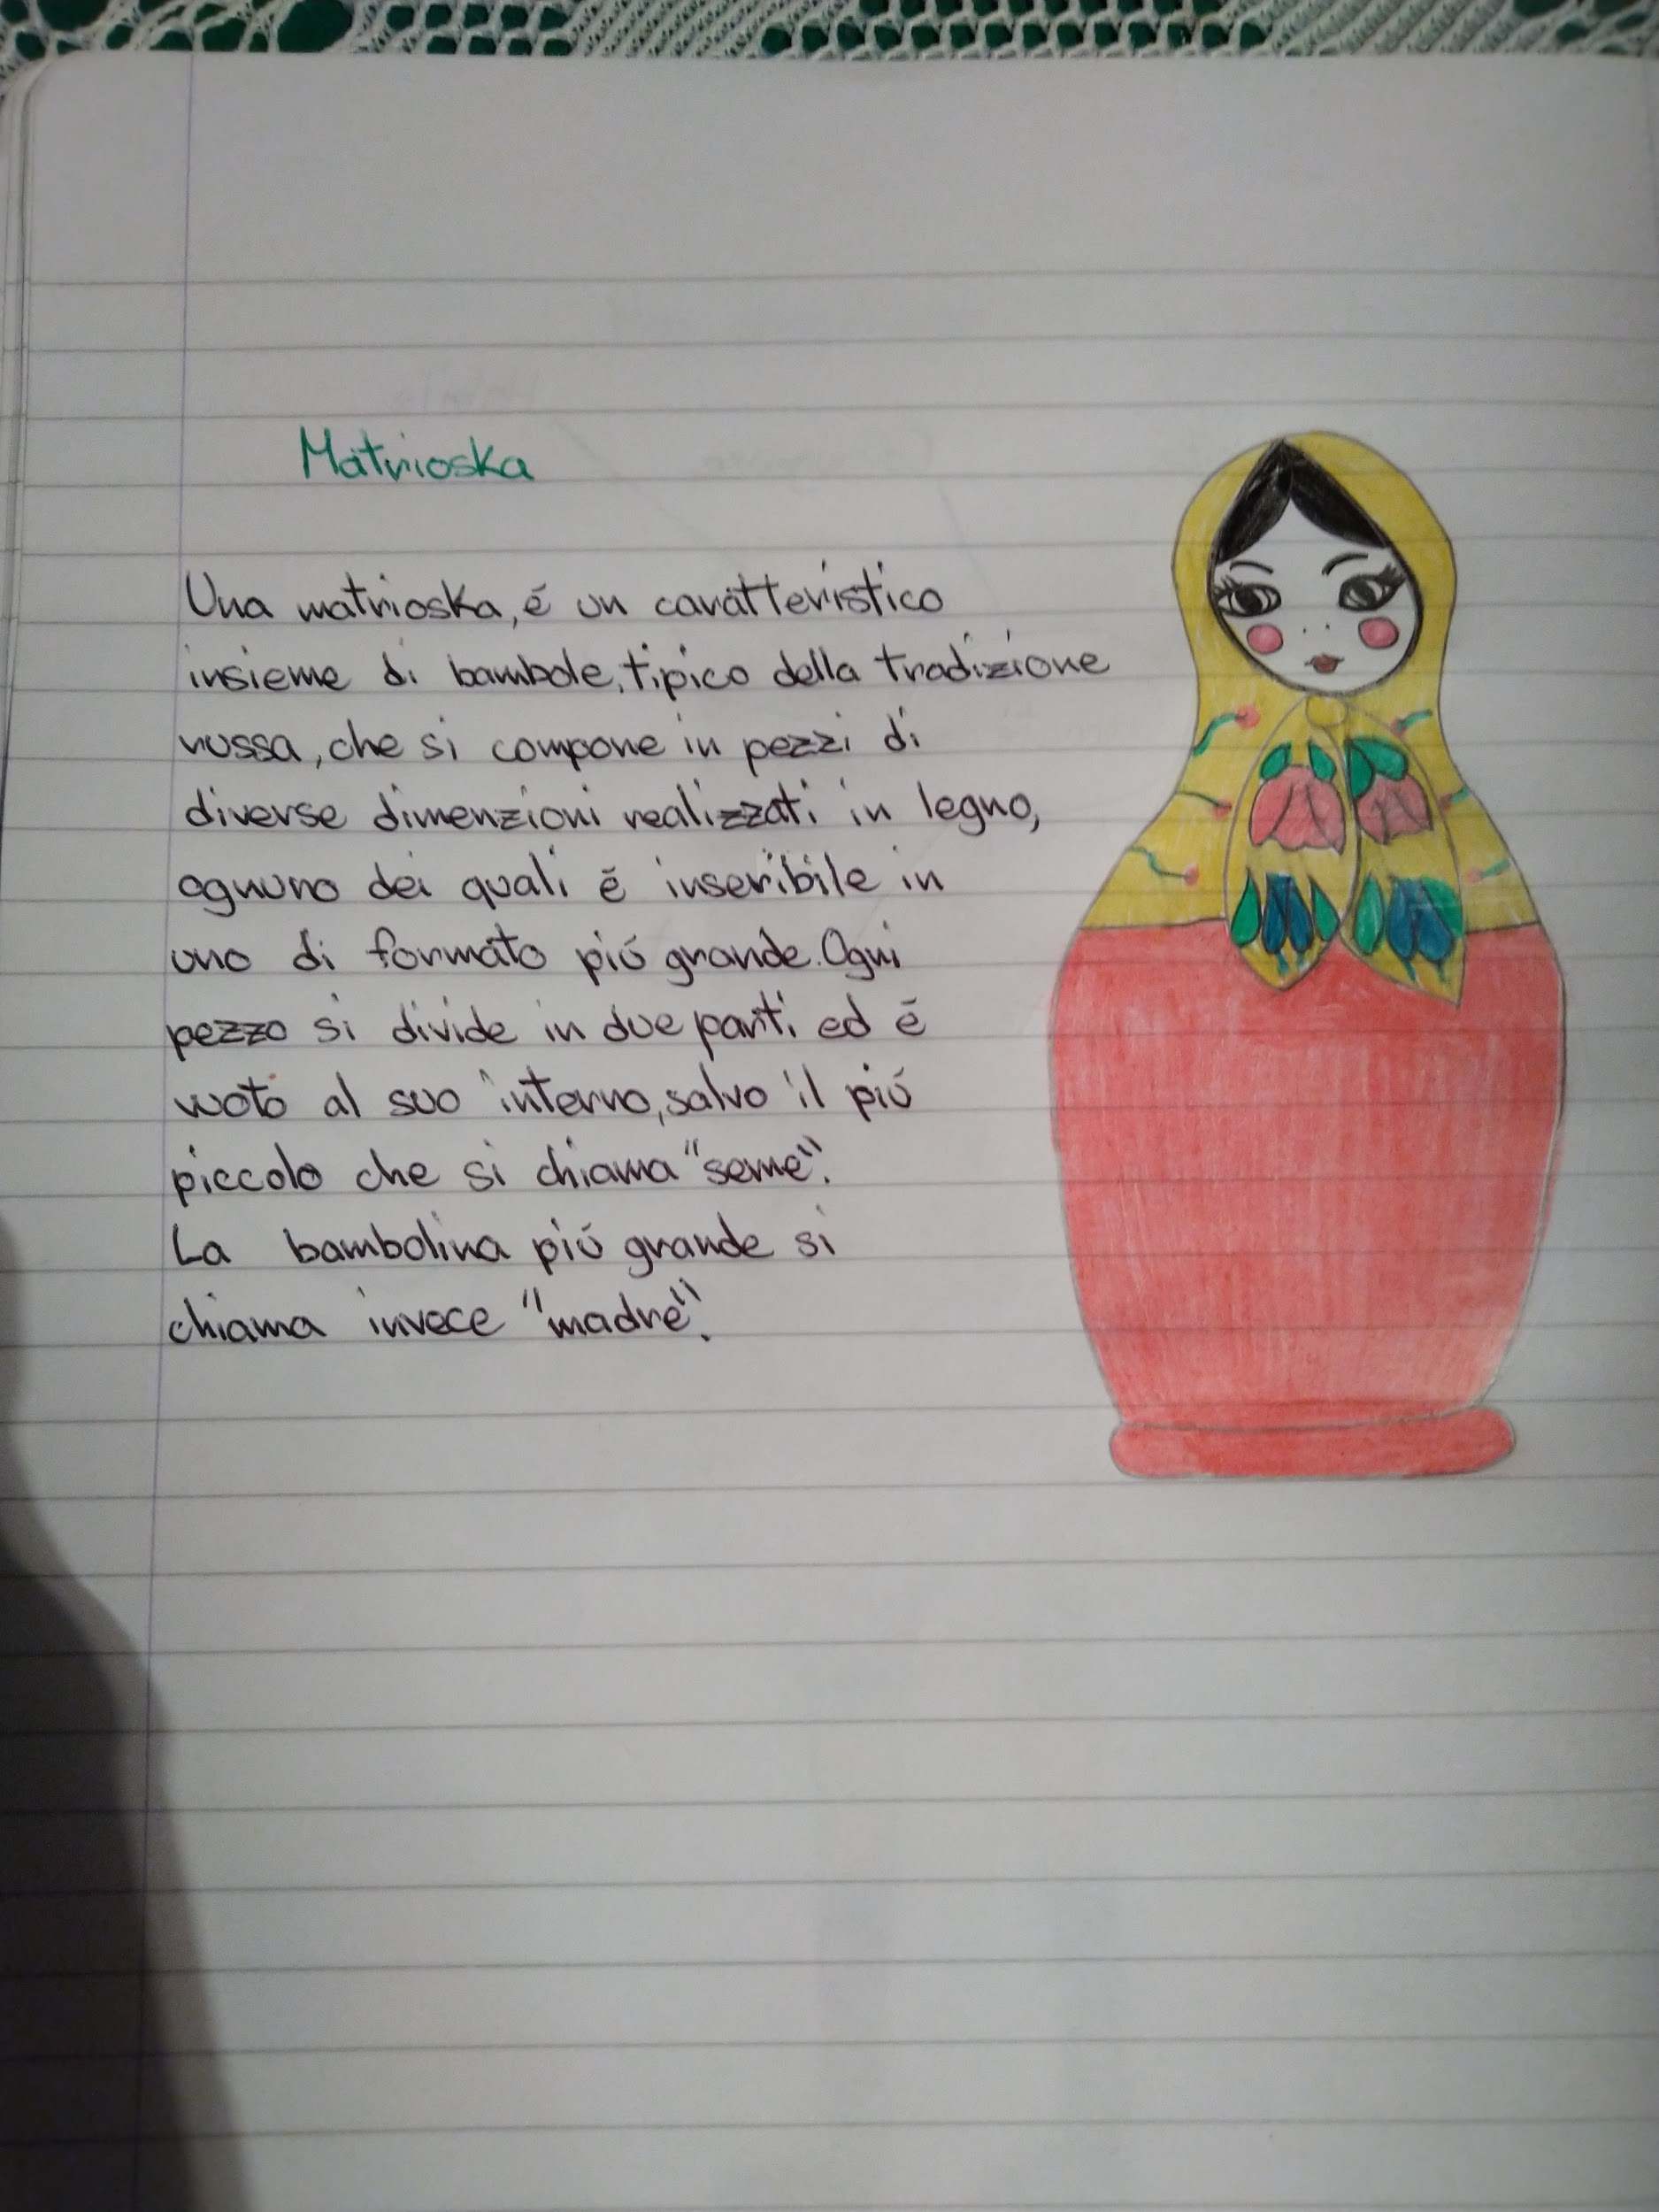 Matrioska
Una matrioska, é un caratteristico
insieme di bambole, tipico della tradizione
russa, che si compone in pezzi di
diverse dimenzioni realizzati in legno,
ognuno dei quali é inseribile in
uno di formato piú grande. Ogni
pezzo si divide in due parti ed é
vuoto al suo interno, salvo il piú
piccolo che si chiama "seme".
La bambolina piú grande si
chiama invece "madre".